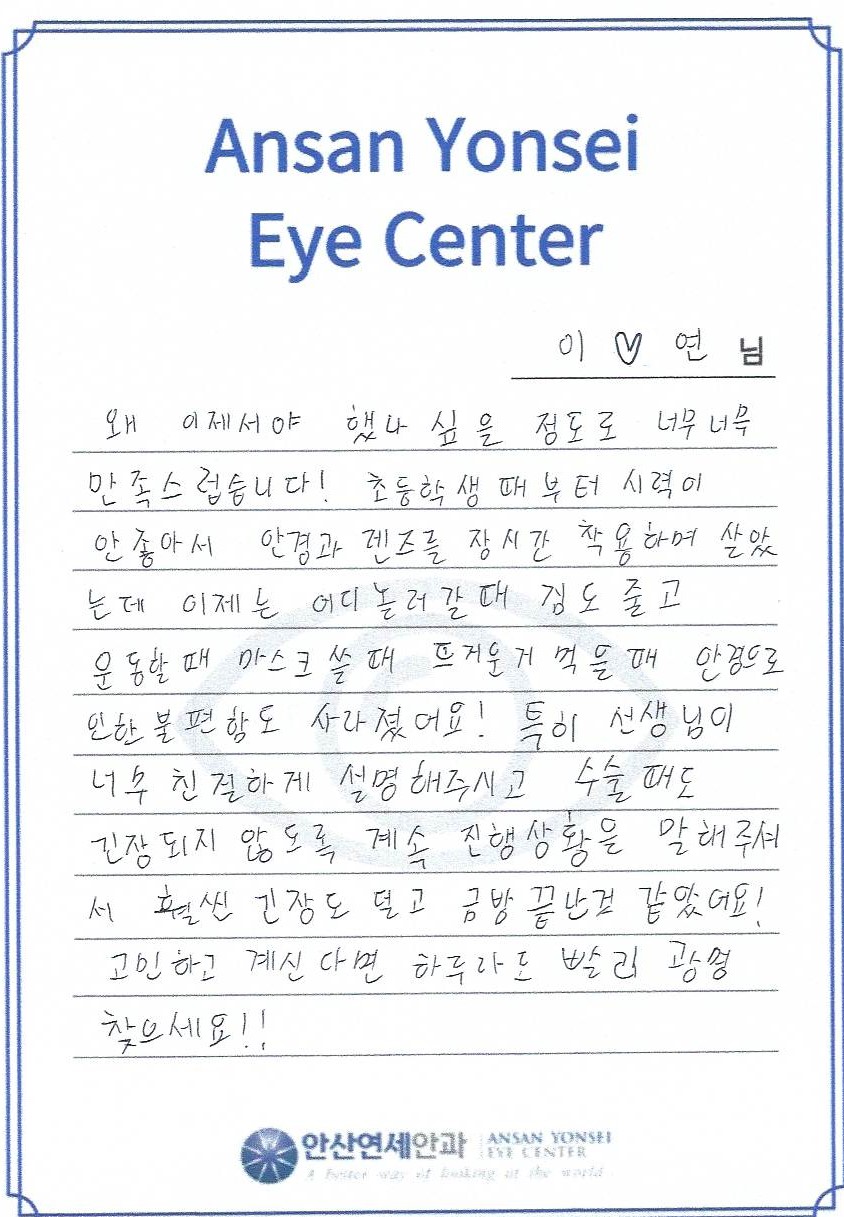 Ansan Yonsei
Eye Center
이 ♡ 연 님
왜 이제서야 했나 싶을 정도로 너무너무
만족스럽습니다! 초등학생때부터 시력이
안좋아서 안경과 렌즈를 장시간 착용하며 살았
는데 이제는 어디놀러갈때 짐도 줄고
운동할때 마스크쓸때 뜨거운거 먹을때 안경으로
인한불편함도 사라졌어요! 특히 선생님이
너무 친절하게 설명해주시고 수술때도
긴장되지 않도록 계속 진행상황을 말해주셔
서 훨씬 긴장도 덜고 금방끝난것 같았어요!
고민하고 계신다면 하루라도 빨리 광명
찾으세요!!
안산연세안과 ANSAN YONSEI
EYE CENTER
A better way of looking at the world